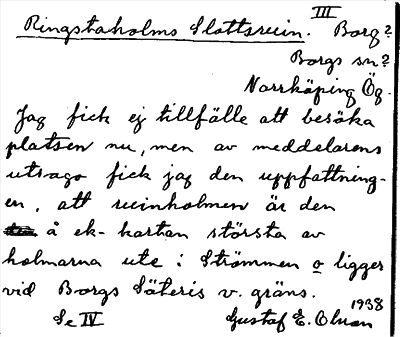 III
Ringstaholms Slottsruin. Borg?
Borgs sn?
Norrköping Ög.
Jag fick ej tillfälle att besöka
platsen nu, men av meddelarens
utsago fick jag den uppfattning-
en, att ruinholmen är den
å ek-kartan största av
holmarna ute i Strömmen o ligger
vid Borgs Säteris v. gräns.
1938
Se IV Gustaf E. Olson